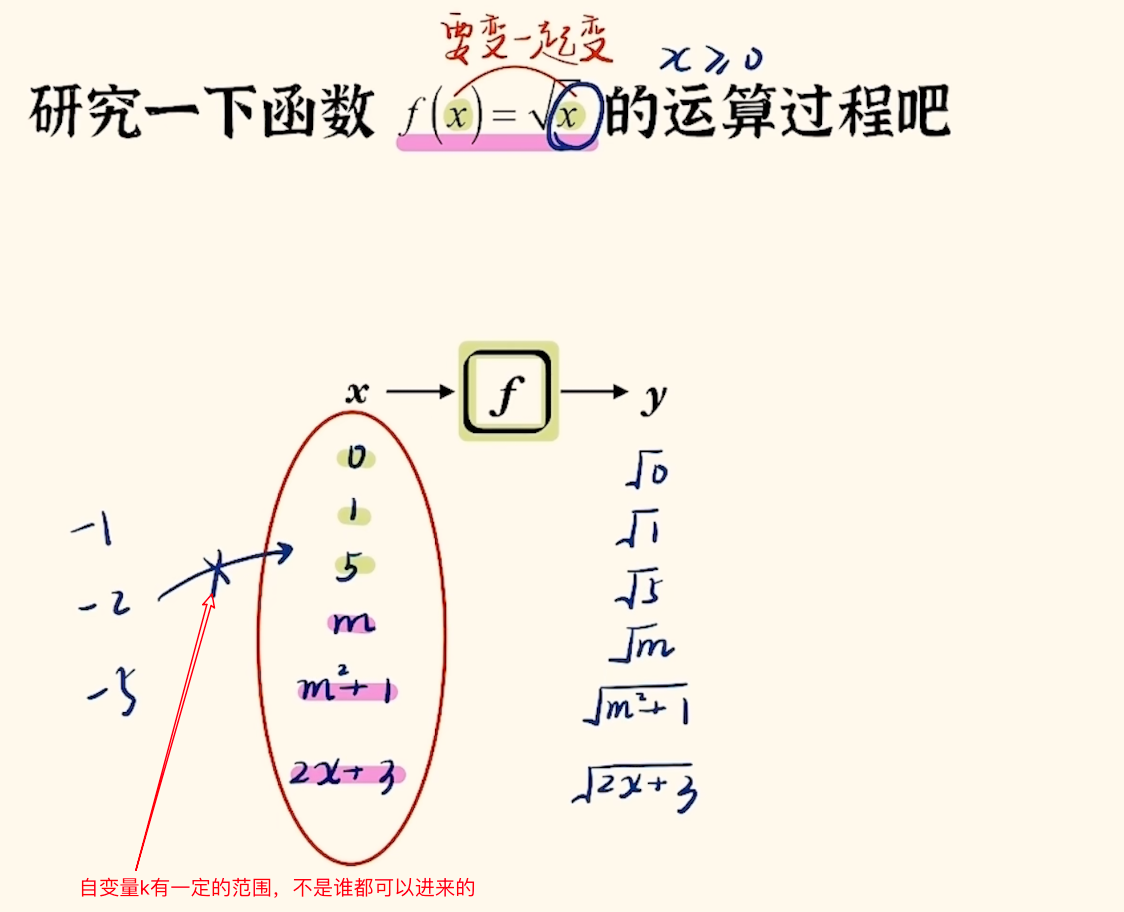 要变一起变
x ≥ 0
研究一下函数 f(x)=√x 的运算过程吧
x → f → y
0 √0
1 √1
-1
5 √5
-2
m √m
-5
m²+1 √(m²+1)
2x+3 √(2x+3)
自变量k有一定的范围，不是谁都可以进来的